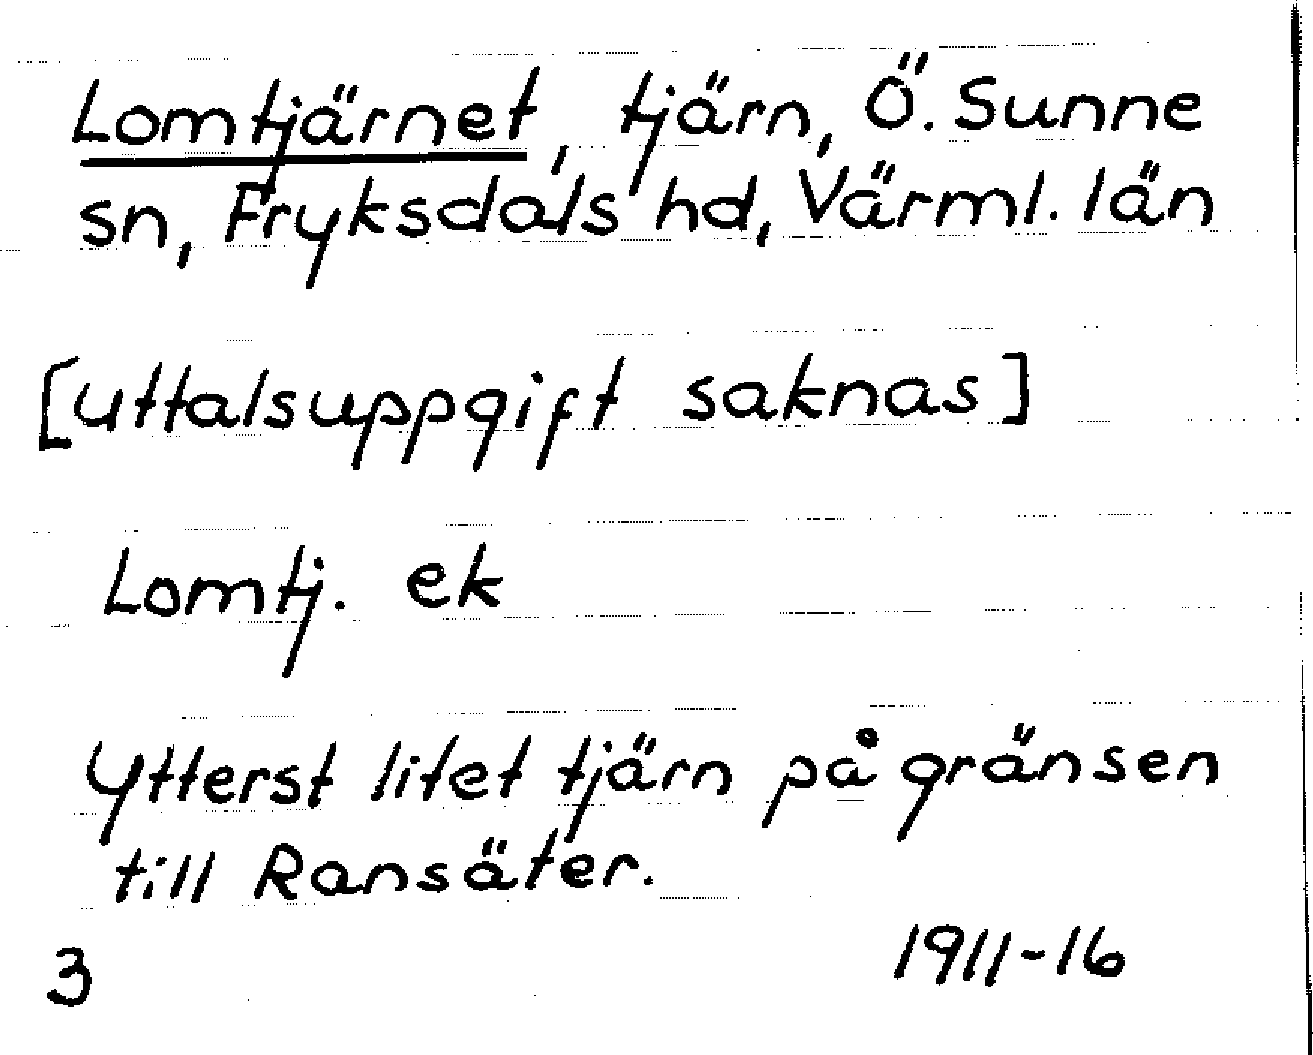 Lomtjärnet, tjärn, Ö. Sunne
sn, Fryksdals hd, Värml. län
[uttalsuppgift saknas]
Lomtj. ek
Ytterst litet tjärn på gränsen
till Ransäter.
3 1911-16